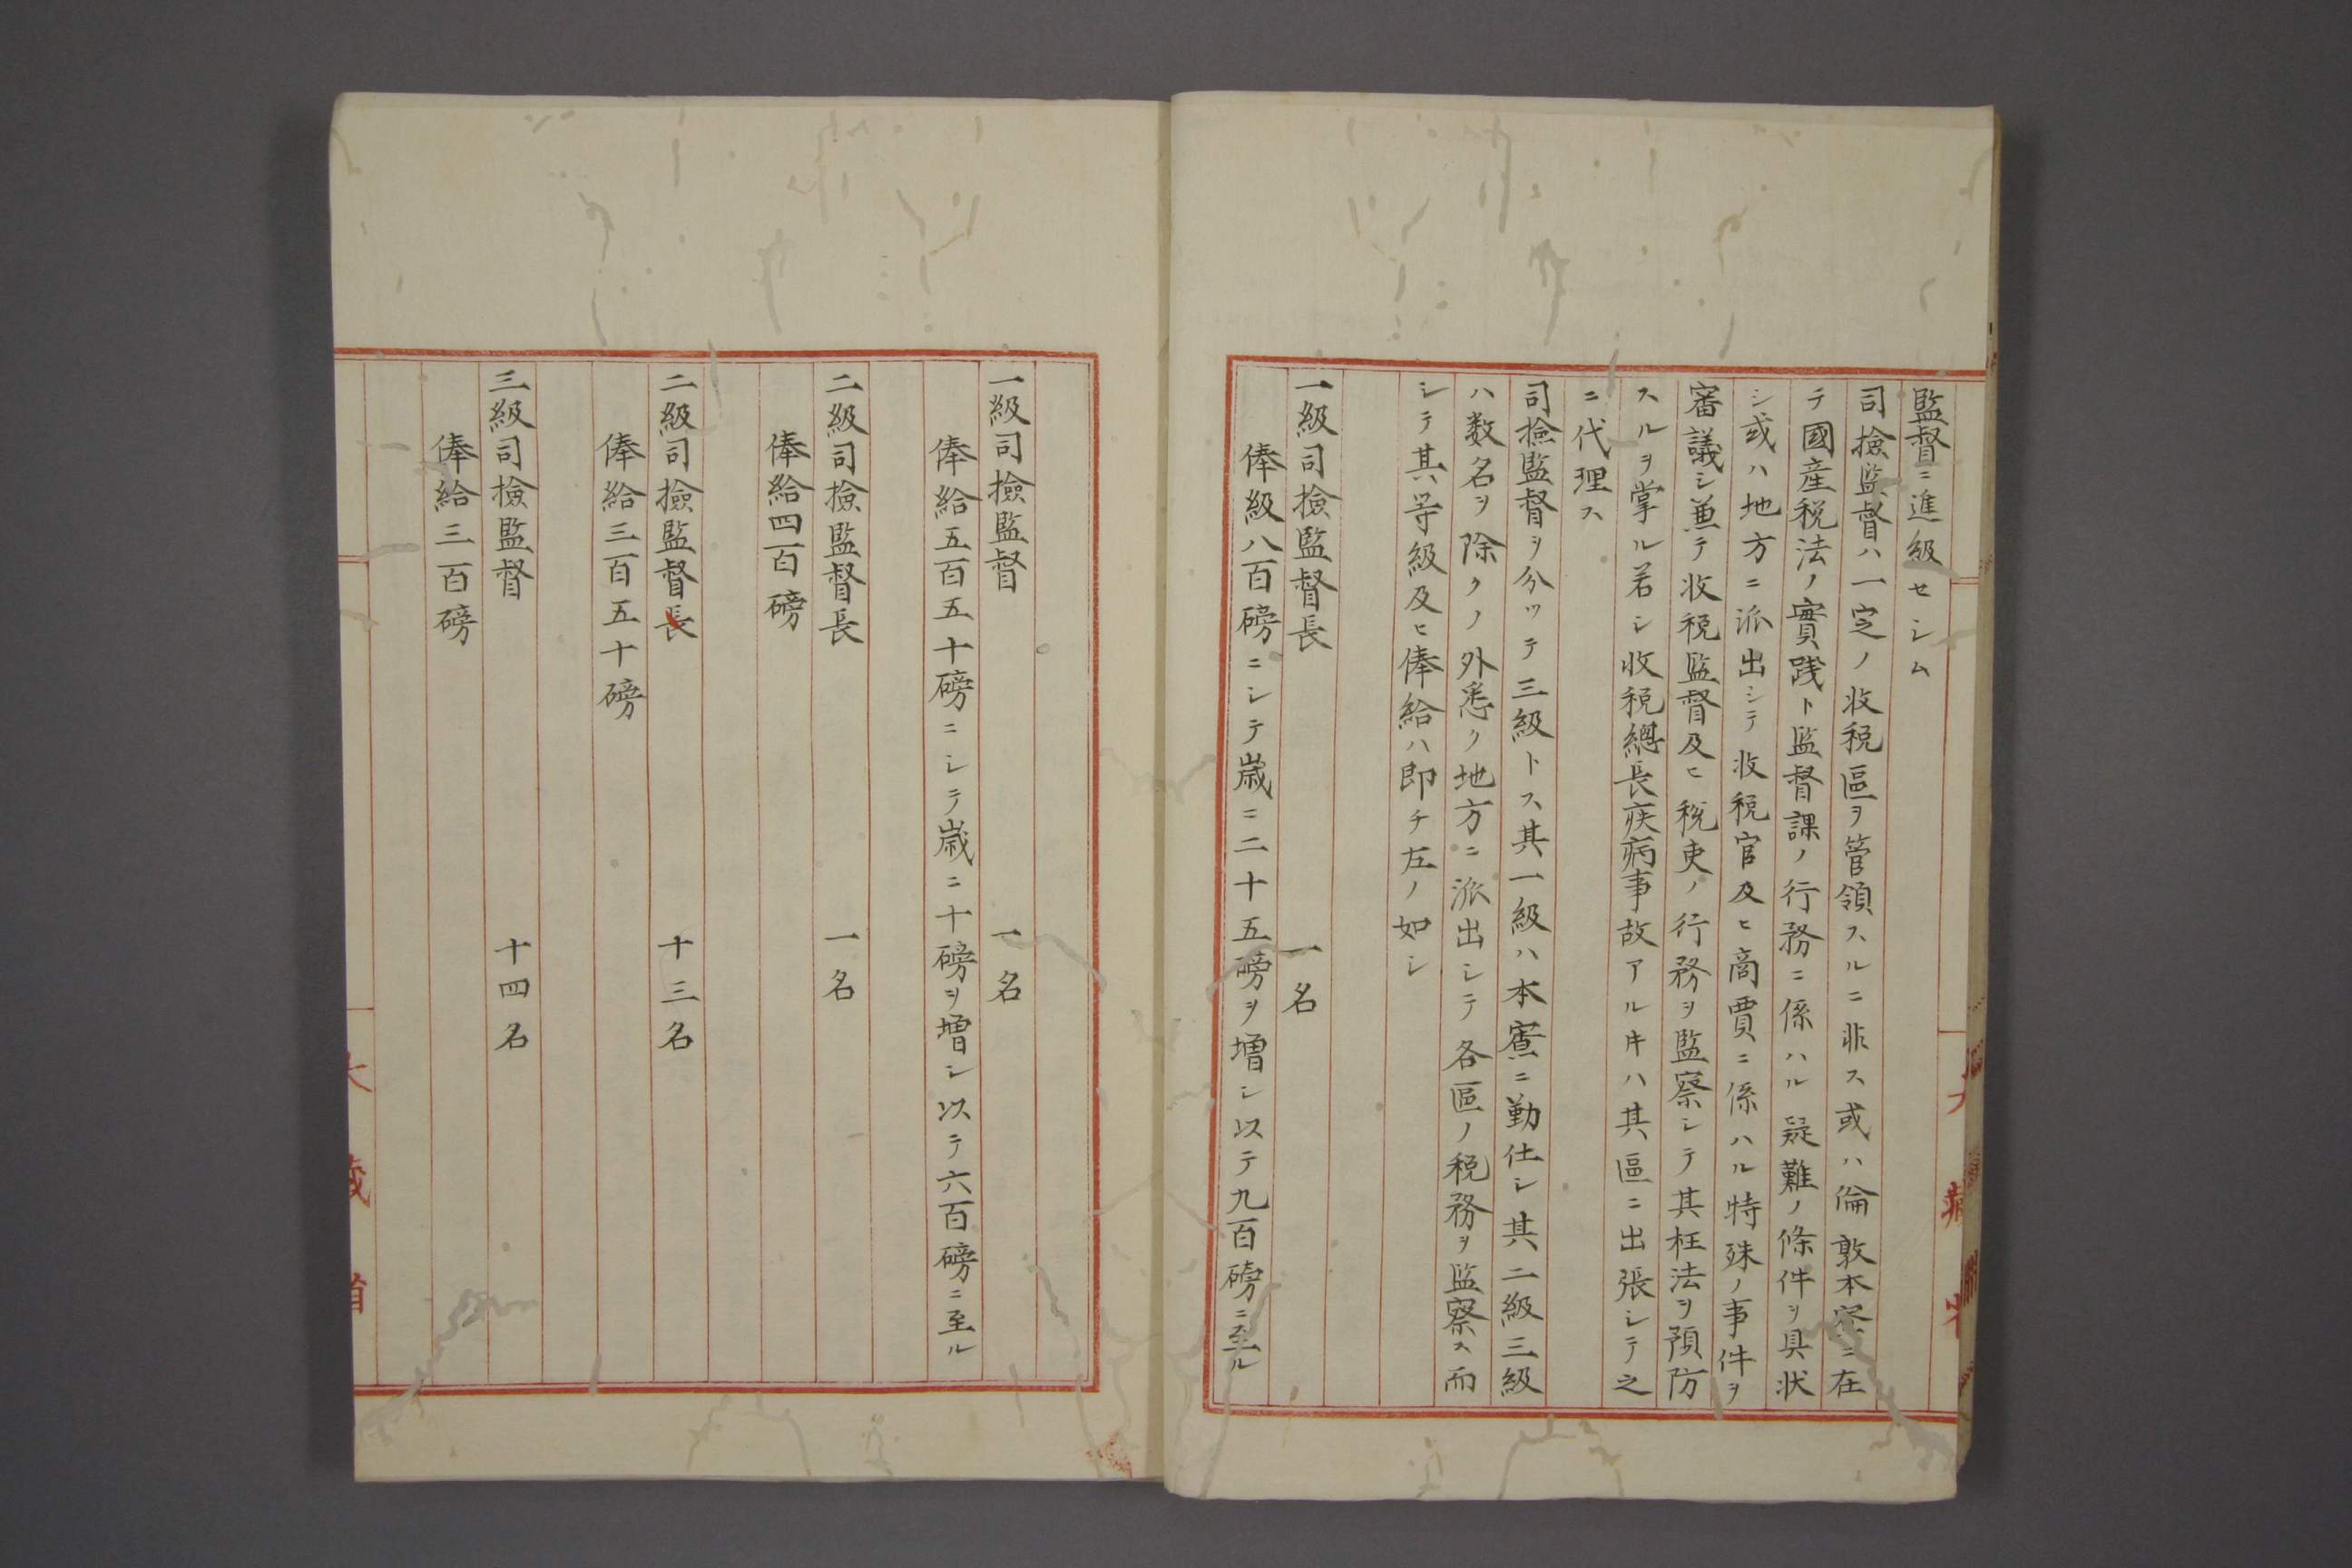 監督ニ進級セシム
司撿監督ハ一定ノ收税區ヲ管領スルニ非ス或ハ倫敦本寮ニ在
テ國産税法ノ實践ト監督課ノ行務ニ係ハル疑難ノ條件ヲ具状
シ或ハ地方ニ派出シテ收税官及ヒ商賈ニ係ハル特殊ノ事件ヲ
審議シ兼テ收税監督及ヒ税吏ノ行務ヲ監察シテ其枉法ヲ預防
スルヲ掌ル若シ收税總長疾病事故アルキハ其區ニ出張シテ之
ニ代理ス
司撿監督ヲ分ッテ三級トス其一級ハ本寮ニ勤仕シ其二級三級
ハ数名ヲ除クノ外悉ク地方ニ派出シテ各區ノ税務ヲ監察ス而
シテ其等級及ヒ俸給ハ即チ左ノ如シ
一級司撿監督長 一名
俸級八百磅ニシテ歳ニ二十五磅ヲ増シ以テ九百磅ニ至ル
一級司撿監督 一名
俸給五百五十磅ニシテ歳ニ十磅ヲ増シ以テ六百磅ニ至ル
二級司撿監督長 一名
俸給四百磅
二級司撿監督長 十三名
俸給三百五十磅
三級司撿監督 十四名
俸給三百磅
大藏省